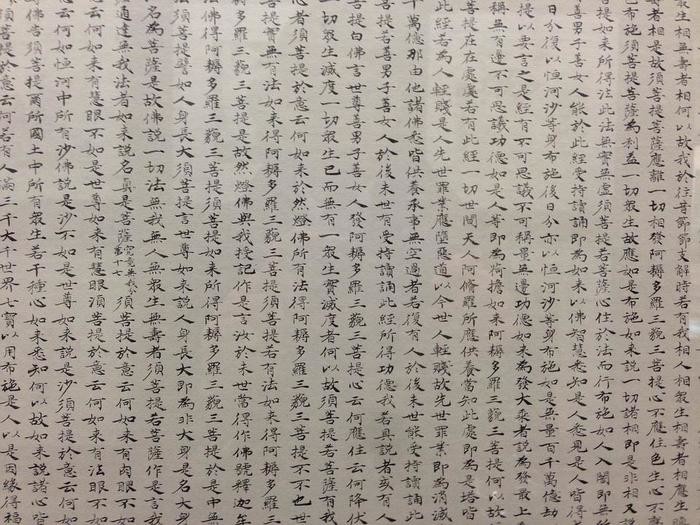 眾生相無壽者相何以故我於往昔節節支解時若有我相人相眾生相壽者相應生
壽者相是故須菩提菩薩應離一切相發阿耨多羅三藐三菩提心不應住色生心不
已布施須菩提菩薩為利益一切眾生故應如是布施如來說一切諸相即是非相又
菩提如來所得法此法無實無虛須菩提若菩薩心住於法而行布施如人入闇即無
善男子善女人能於此經受持讀誦即為如來以佛智慧悉知是人悉見是人皆得
日分復以恒河沙等身布施後日分亦以恒河沙等身布施如是無量百千萬億劫
提以要言之是經有不可思議不可稱量無邊功德如來為發大乘者說為發最上
無有邊不可思議功德如是人等即為荷擔如來阿耨多羅三藐三菩提何以故
提在在處處若有此經一切世間天人阿脩羅所應供養當知此處即為是塔皆
此經若為人輕賤是人先世罪業應墮惡道以今世人輕賤故先世罪業即為消滅
千萬億那由他諸佛悉皆供養承事無空過者若復有人於後末世能受持讀誦此
菩提若善男子善女人於後末世有受持讀誦此經所得功德我若具說者或有人
提白佛言世尊善男子善女人發阿耨多羅三藐三菩提心云何應住云何降伏
一切眾生滅度一切眾生已而無有一眾生實滅度者何以故須菩提若菩薩有
心者須菩提於意云何如來於然燈佛所有法得阿耨多羅三藐三菩提不不也世
菩提實無有法如來得阿耨多羅三藐三菩提須菩提若有法如來得阿耨多羅
耨多羅三藐三菩提是故然燈佛與我授記作是言汝於來世當得作佛號釋迦牟
法佛得阿耨多羅三藐三菩提須菩提如來所得阿耨多羅三藐三菩提於是中無
須菩提譬如人身長大須菩提言世尊如來說人身長大即為非大身是名大身
名為菩薩是故佛說一切法無我無人無眾生無壽者須菩提若菩薩作是言我
通達無我法者如來說名真是菩薩究竟無我分第十七須菩提於意云何如來有肉眼不如
意云何如來有慧眼不如是世尊如來有慧眼須菩提於意云何如來有法眼不
云何如恒河中所有沙佛說是沙不如是世尊如來說是沙須菩提於意云何如
佛告須菩提爾所國土中所有眾生若干種心如來悉知何以故如來說諸心皆
須菩提於意云何若有人滿三千大千世界七寶以用布施是人以是因緣得福